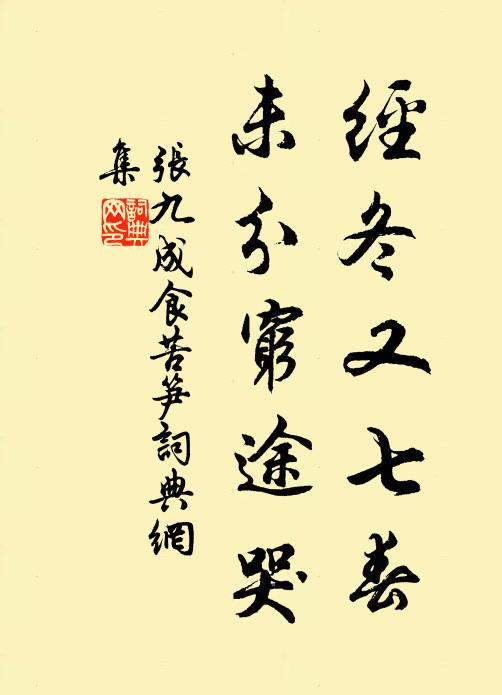 經冬又七春
未分窮途哭
張九成食苦笋詞典網
集
詞典
网印